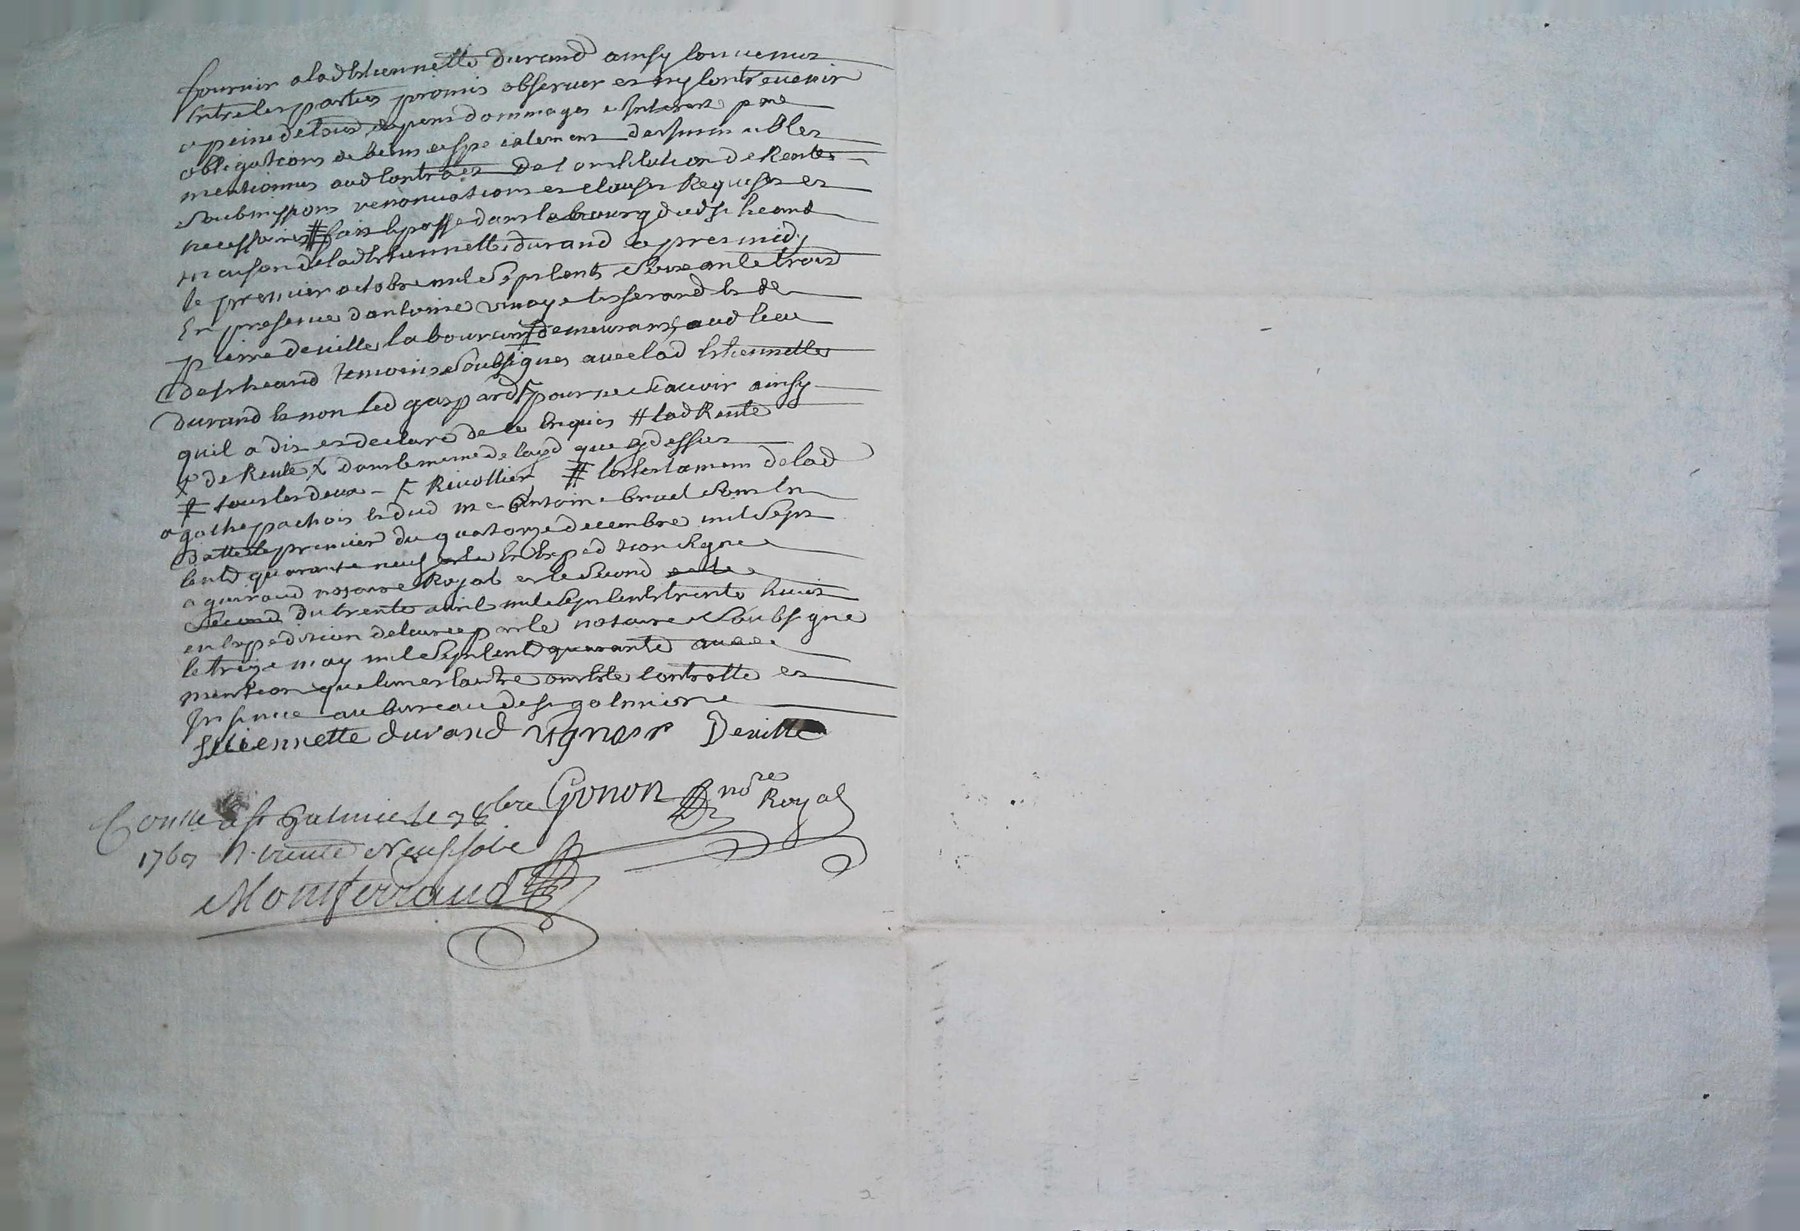 fournir a lad Estiennette durand ainsy convenus
Entre les parties promis observer et ny contrevenir
a peine de tous depens dommages e Interest par
obligations de biens e spe ialemens des Immeubles
mentionnes aud contrat de Constitution de Rentes
Soubmissions renonciations et clauses Requises et
necessaires # fait e passe dans le bourg dud st heand
maison de lad Estiennette durand apres midy
le premier octobre mil Sept cents Soixante trois
En presence d antoine vinay tisserand et de
pierre deville laboureur demeurans aud lieu
de st heand temoins Soubsignes avec lad Estiennette
durand le non led gaspard pour ne Scavoir ainsy
quil a dit et declaré de ce Enquis # lad Rente
x de Rente x dans le meme delayd que cy dessus
# tous les deux - Rivollier # les testamens de lad
agathe pachois et dud me antoine bruel Sont En
datte le premier du quatorze decembre mil Sept
cent quarante neuf En Expedition Signe
aguiraud notaire Royal et le Second
Second du trente avril mil Sept cents trente huit
en Expedition delivree par le notaire Soubsigné
le treize may mil Sept cent quarante avec
mention que l'un et l'autre ont eté controlle et
Insinue au bureau de st galmier
Estiennette durand vignoir Deville
Gonon nore Royal
Conllé a st Galmier le 7 8bre
1763 R. trente Neuf sols
Montferrand